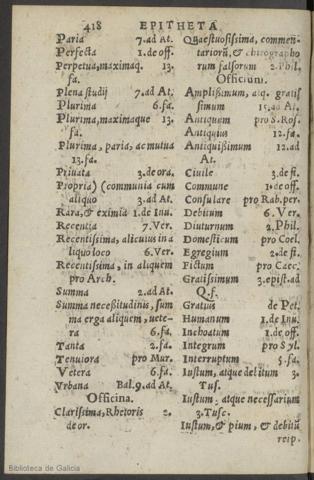 418 EPITHETA
Paria 7.ad At.
Perfecta 1.de off.
Perpetua, maximaq. 13.
fa.
Plena studij 7.ad At.
Plurima 6.fa.
Plurima, maximaque 13.
fa.
Plurima, paria, ac mutua
13.fa.
Priuata 3.de ora.
Propria) (communia cum
aliquo 3.ad At.
Rara, & eximia 1.de Inu.
Recentia 7.Ver.
Recentissima, alicuius in a
liquo loco 6.Ver.
Recentissima, in aliquem
pro Arch.
Summa 2.ad At.
Summa necessitudinis, sum
ma erga aliquem, uete-
ra 6.fa.
Tanta 2.fa.
Tenuiora pro Mur.
Vetera 6.fa.
Vrbana Bal.9.ad At.
Officina.
Clarissima, Rhetoris 2.
de or.
Quaestuosissima, commen-
tariorũ, & chirographo
rum falsorum 2.Phil.
Officium.
Amplissimum, atq. gratis
simum 15.ad At.
Antiquum pro S.Ros.
Antiquius 12.fa.
Antiquissimum 12.ad
At.
Ciuile 3.de fi.
Commune 1.de off.
Consulare pro Rab.per.
Debitum 6.Ver.
Diuturnum 2.Phil.
Domesticum pro Coel.
Egregium 2.de fi.
Fictum pro Caec.
Gratissimum 3.epist.ad
Q.f.
Grauius de Pet.
Humanum 1.de Inu.
Inchoatum 1.de off.
Integrum pro Syl.
Interruptum 5.fa.
Iustum, atque debitum 3.
Tus.
Iustum, atque necessarium
3.Tusc.
Iustum, & pium, & debitũ
reip.
Biblioteca de Galicia